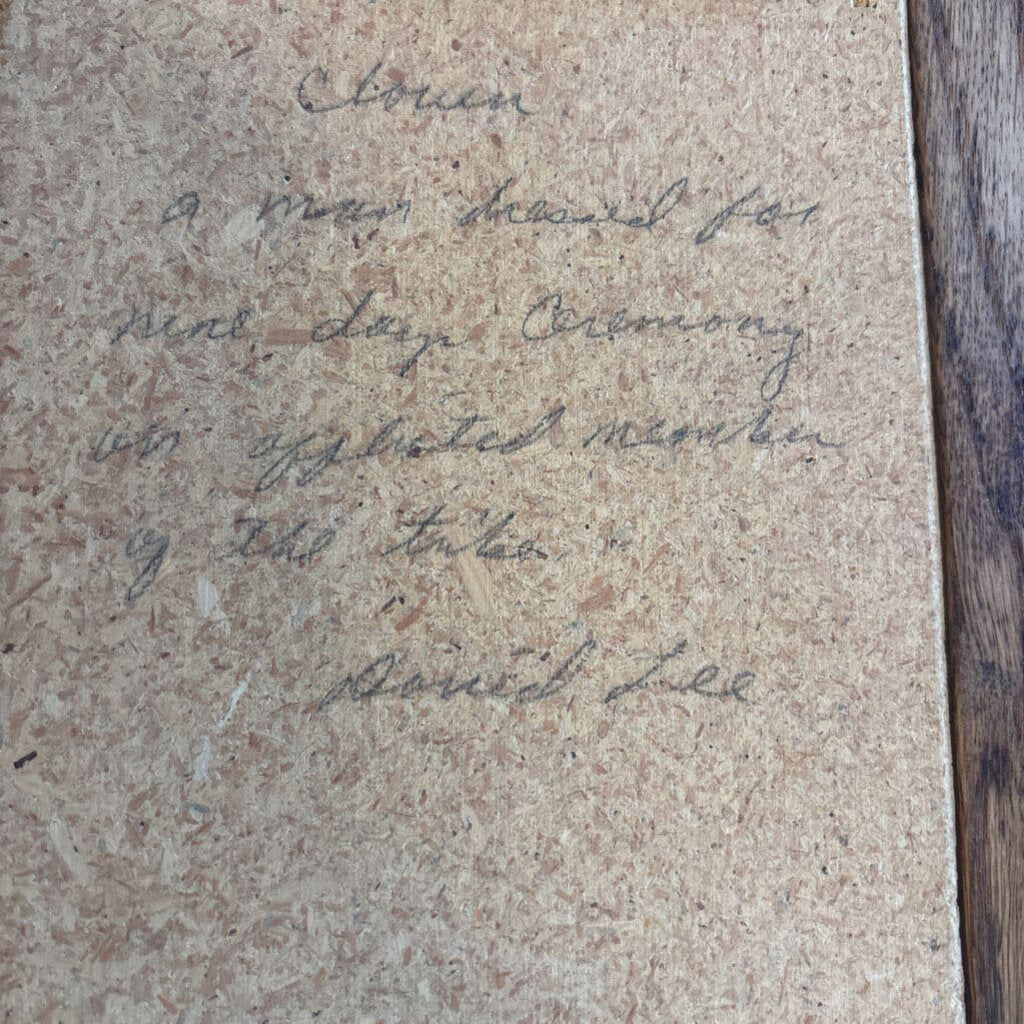 Clown
a man dressed for
nine days Ceremony
an affliated member
of the tribe.
David Lee